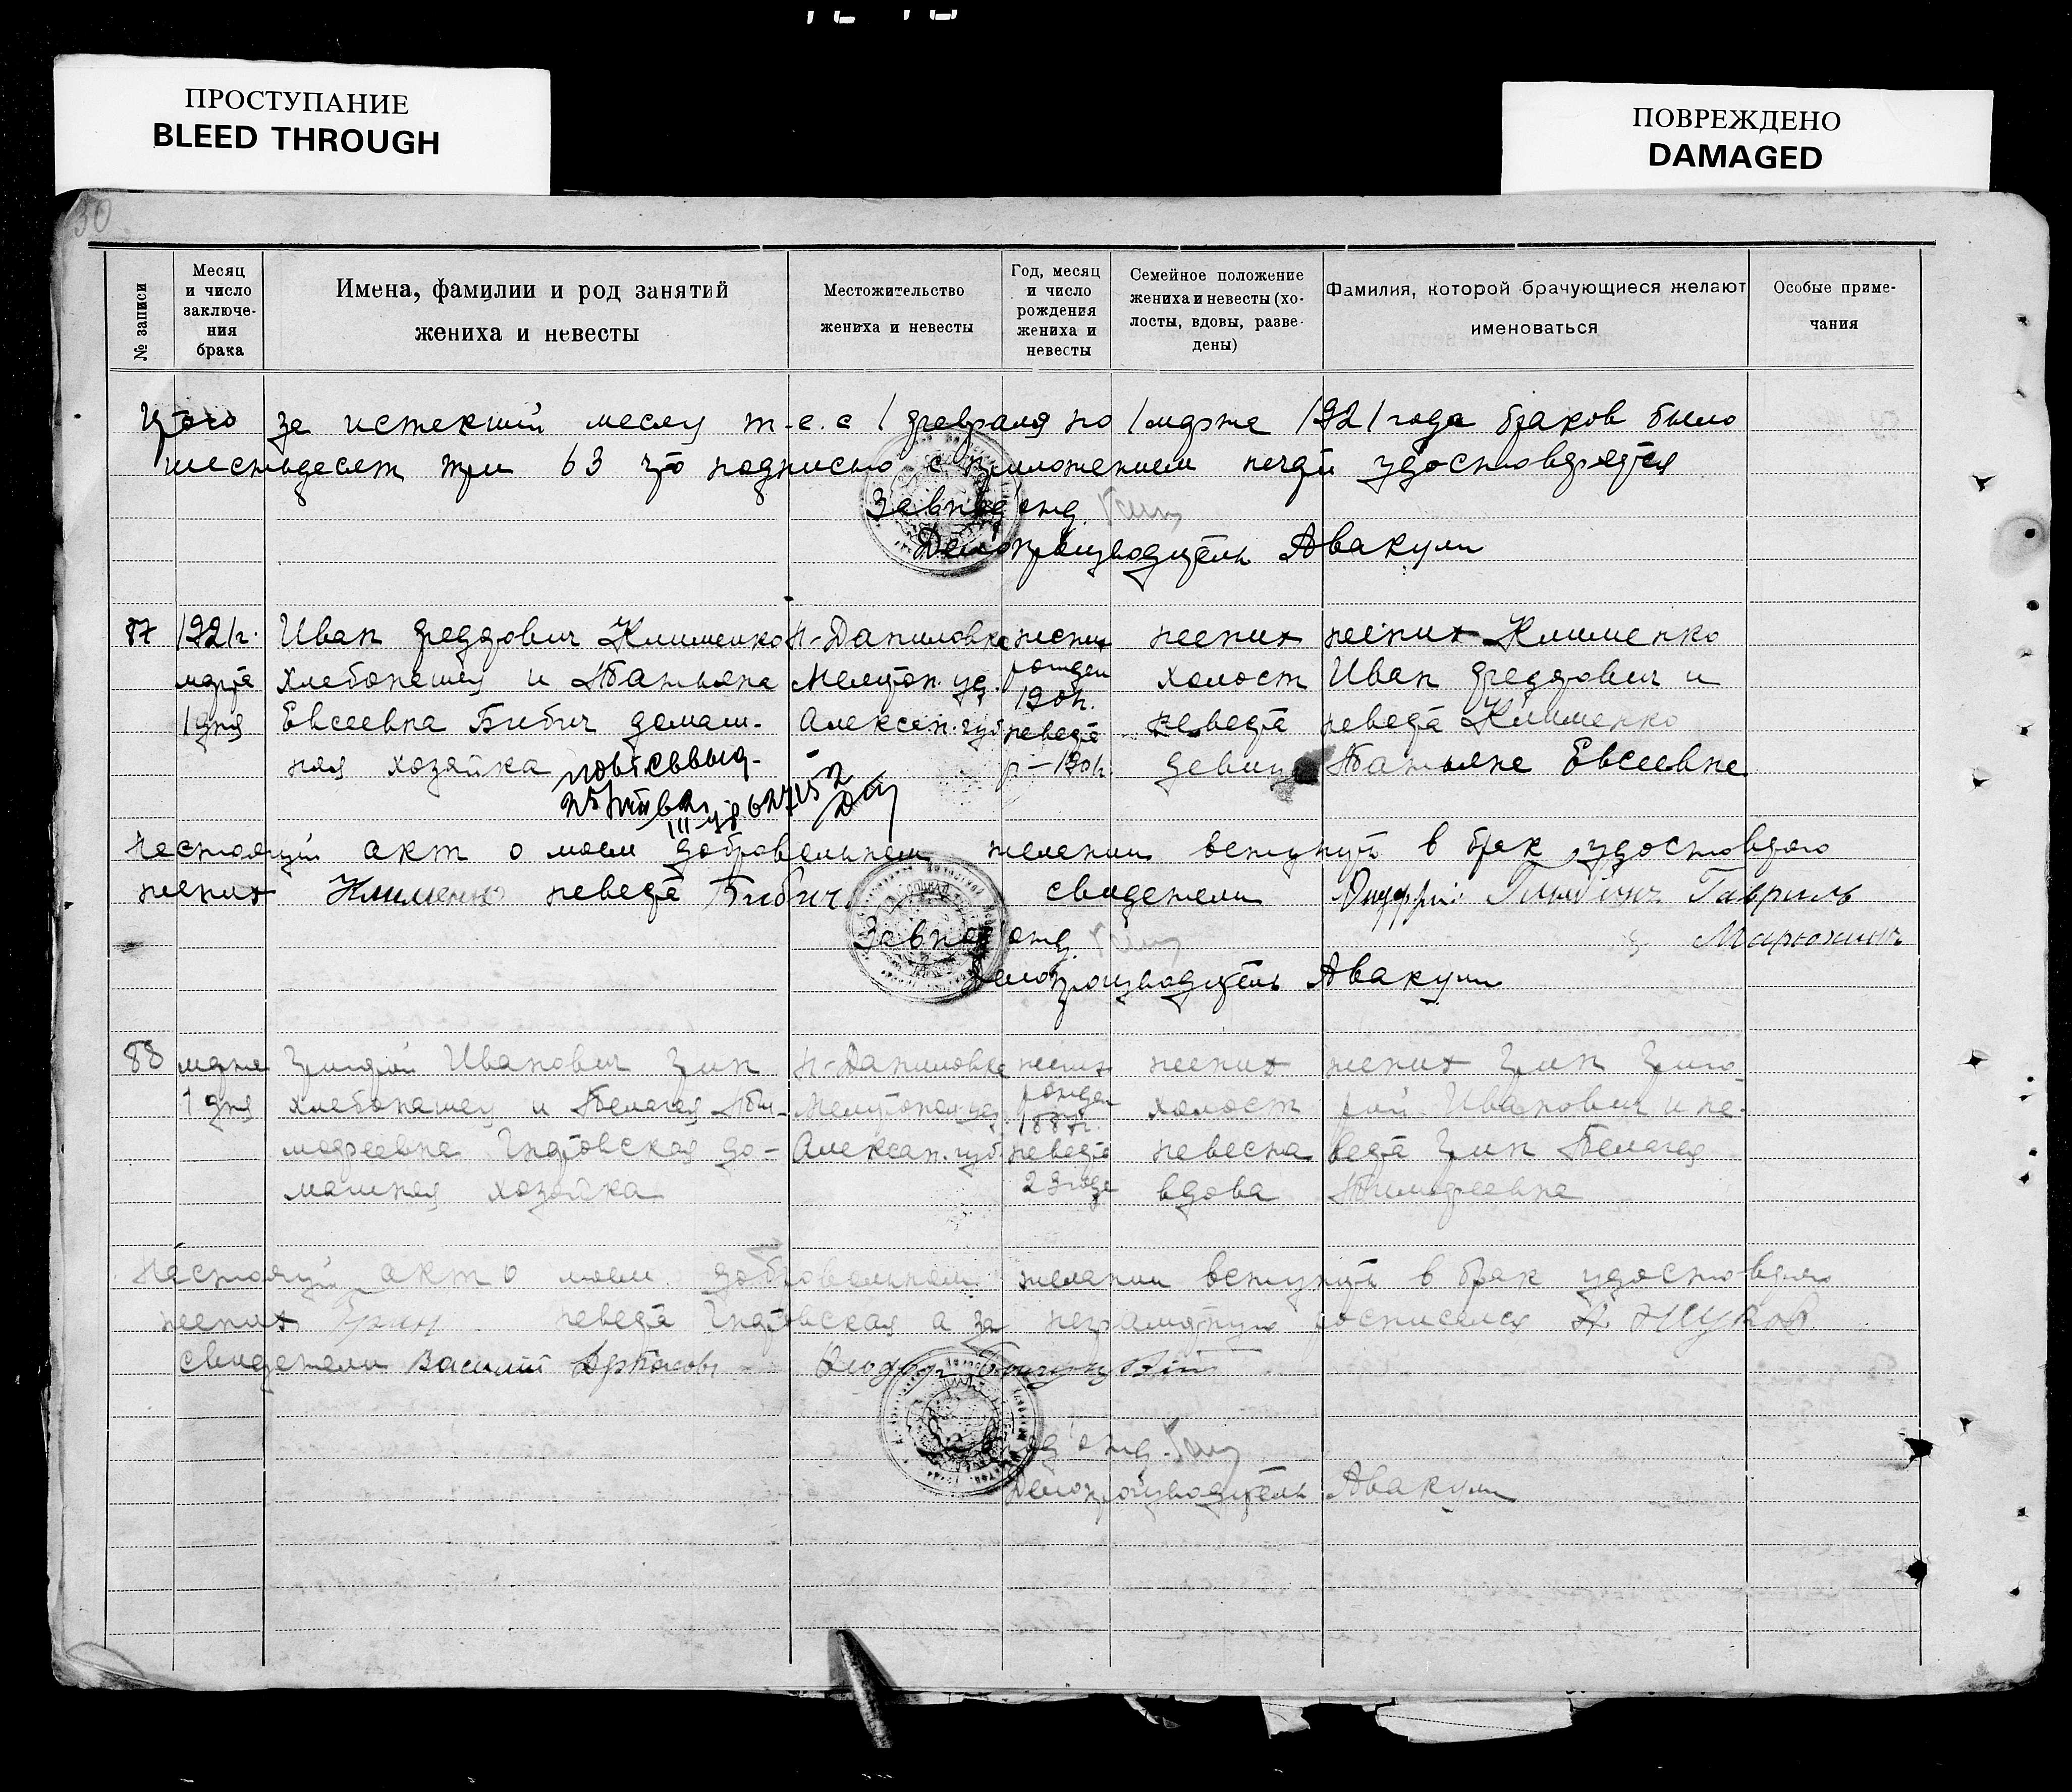 ПРОСТУПАНИЕ
BLEED THROUGH
ПОВРЕЖДЕНО
DAMAGED
30
№ записи
Месяц и число заключения брака
Имена, фамилии и род занятий жениха и невесты
Местожительство жениха и невесты
Год, месяц и число рождения жениха и невесты
Семейное положение жениха и невесты (холосты, вдовы, разведены)
Фамилия, которой брачующиеся желают именоваться
Особые примечания
Итого за истекший месяц т.е. с 1 февраля по 1 марта 1921 года браков было
шестьдесят три 63 что подписью с приложением печати удостоверяется
Завпод'отд.
Делопроизводитель Авакум
87 1921г. Иван Федорович Клименко Н-Даниловка жених жених жених Клименко
марта хлебопашец и Татьяна Мелитоп. уе. рожден холост Иван Федорович и
1 дня Евсеевна Бибич домаш- Алексан. губ 190 г. невеста невеста Клименко
няя хозяйка невеста р- девица Татьяне Евсеевне
Настоящий акт о моем добровольном желании вступить в брак удостоверяю
жених Клименко невеста Бибич свидетели Гавриль
Завпод'отд.
Делопроизводитель Авакум
88 марта Григорий Иванович Грин Н-Даниловка жених жених жених Грин Григо-
1 дня хлебопашец и Пелагея Ти- Мелитопол. уе. рожден 1887г. холост рий Иванович и не-
мофеевна Гнатовская до- Алексан. губ. невеста невеста веста Грин Пелагея
машняя хозяйка 23 года вдова Тимофеевна
Настоящий акт о моем добровольном желании вступить в брак удостоверяю
жених Грин невеста Гнатовская а за неграмотную росписался А. Жуков
свидетели Василий
под'отд.
Делопроизводитель Авакум